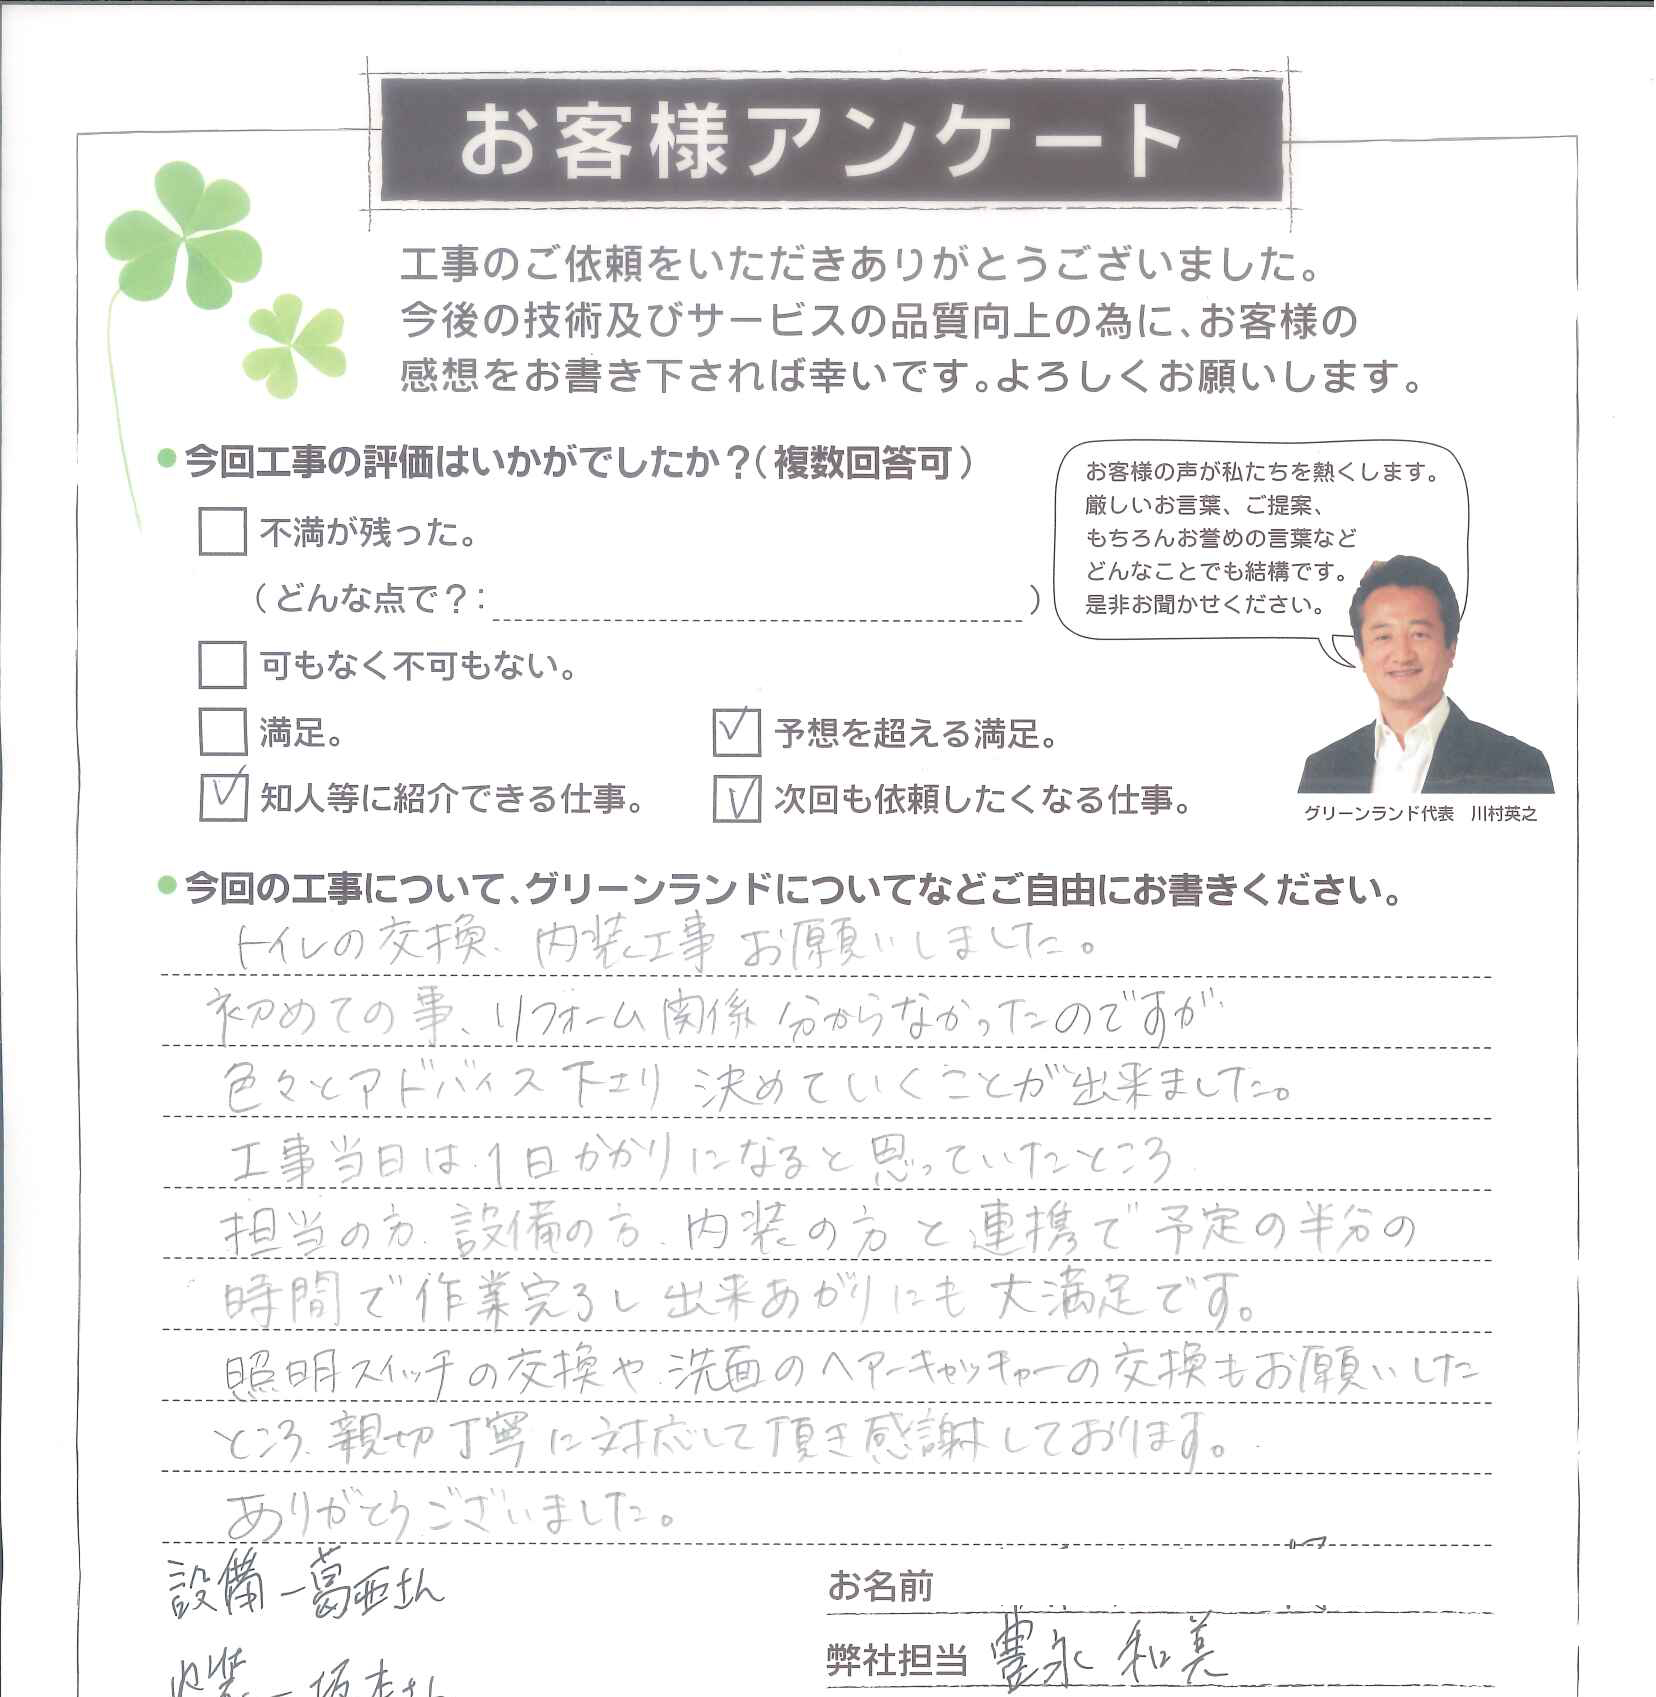 お客様アンケート
工事のご依頼をいただきありがとうございました。
今後の技術及びサービスの品質向上の為に、お客様の
感想をお書き下されば幸いです。よろしくお願いします。
今回工事の評価はいかがでしたか？（複数回答可）
不満が残った。
（どんな点で？：　）
可もなく不可もない。
満足。
予想を超える満足。
知人等に紹介できる仕事。
次回も依頼したくなる仕事。
お客様の声が私たちを熱くします。
厳しいお言葉、ご提案、
もちろんお誉めの言葉など
どんなことでも結構です。
是非お聞かせください。
グリーンランド代表　川村英之
今回の工事について、グリーンランドについてなどご自由にお書きください。
トイレの交換、内装工事 お願いしました。
初めての事、リフォーム関係 分からなかったのですが
色々とアドバイス下さり 決めていくことが出来ました。
工事当日は、1日かかりになると思っていたところ
担当の方、設備の方、内装の方と連携で予定の半分の
時間で作業完了し 出来あがりにも大満足です。
照明スイッチの交換や、洗面のヘアーキャッチャーの交換もお願いした
ところ、親切丁寧に対応して頂き感謝しております。
ありがとうございました。
設備ー葛西さん
内装ー坂本さん
お名前
弊社担当 豊永 和美